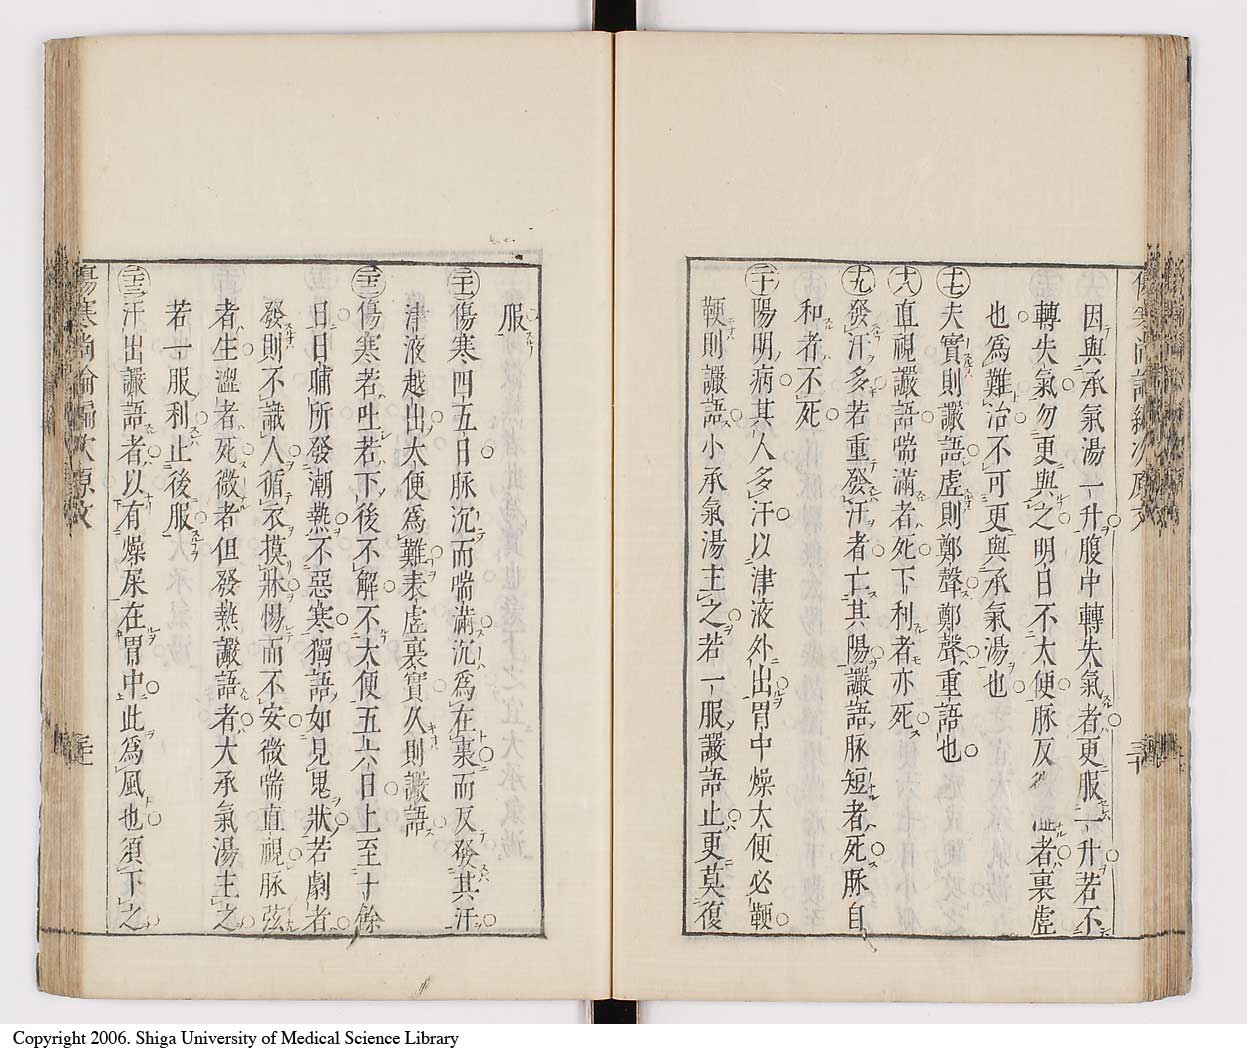 因與承氣湯一升腹中轉失氣者更服一升若不
轉失氣勿更與之明日不大便脉反微澁者裏虛
也爲難治不可更與承氣湯也
十七夫實則讝語虛則鄭聲鄭聲重語也
十八直視讝語喘滿者死下利者亦死
十九發汗多若重發汗者亡其陽讝語脉短者死脉自
和者不死
二十陽明病其人多汗以津液外出胃中燥大便必鞕
鞕則讝語小承氣湯主之若一服讝語止更莫復
服
二十一傷寒四五日脉沉而喘滿沉爲在裏而反發其汗
津液越出大便爲難表虛裏實久則讝語
二十二傷寒若吐若下後不解不大便五六日上至十餘
日日晡所發潮熱不惡寒獨語如見鬼狀若劇者
發則不識人循衣摸牀惕而不安微喘直視脉弦
者生澀者死微者但發熱讝語者大承氣湯主之
若一服利止後服
二十三汗出讝語者以有燥屎在胃中此爲風也須下之
傷寒尚論編次原文
Copyright 2006. Shiga University of Medical Science Library